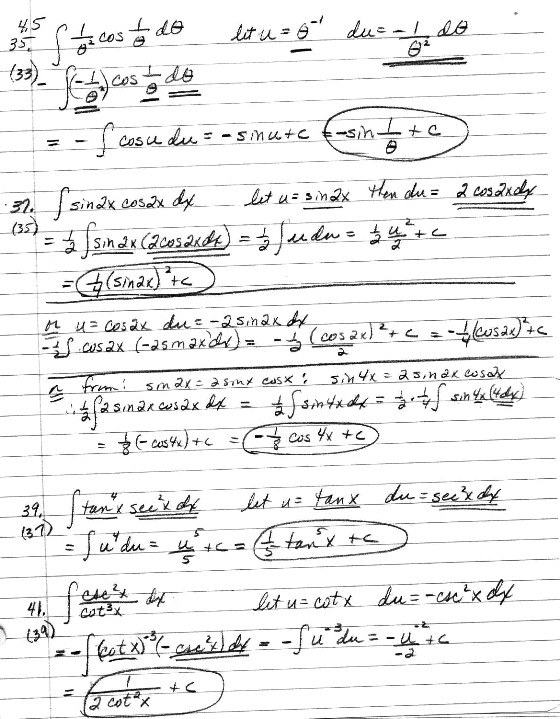 4.5
35. ∫ 1/θ² cos 1/θ dθ let u = θ⁻¹ du = -1/θ² dθ
(33) - ∫(-1/θ²) cos 1/θ dθ
= - ∫ cos u du = - sin u + c = -sin 1/θ + c
37. ∫ sin2x cos2x dx let u = sin2x then du = 2 cos2x dx
(35) = 1/2 ∫ sin2x (2cos2x dx) = 1/2 ∫ u du = 1/2 u²/2 + c
= 1/4 (sin2x)² + c
or u = cos2x du = -2 sin2x dx
-1/2 ∫ cos2x (-2sin2x dx) = -1/2 (cos2x)²/2 + c = -1/4 (cos2x)² + c
or from: sin2x = 2sinx cosx : sin4x = 2sin2x cos2x
∴ 1/2 ∫ 2sin2x cos2x dx = 1/2 ∫ sin4x dx = 1/2 · 1/4 ∫ sin4x (4dx)
= 1/8 (-cos4x) + c = -1/8 cos4x + c
39. ∫ tan⁴x sec²x dx let u = tanx du = sec²x dx
(37) = ∫ u⁴ du = u⁵/5 + c = 1/5 tan⁵x + c
41. ∫ csc²x/cot³x dx let u = cotx du = -csc²x dx
(39) = - ∫ (cotx)⁻³ (-csc²x) dx = - ∫ u⁻³ du = -u⁻²/-2 + c
= 1/(2 cot²x) + c